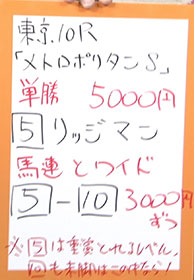 東京10R
「メトロポリタンS」
単勝 5000円
5 リッジマン
馬連とワイド
5-10 3000円
ずつ
※5は重賞とれるレベル、
10も末脚はこの中なら!